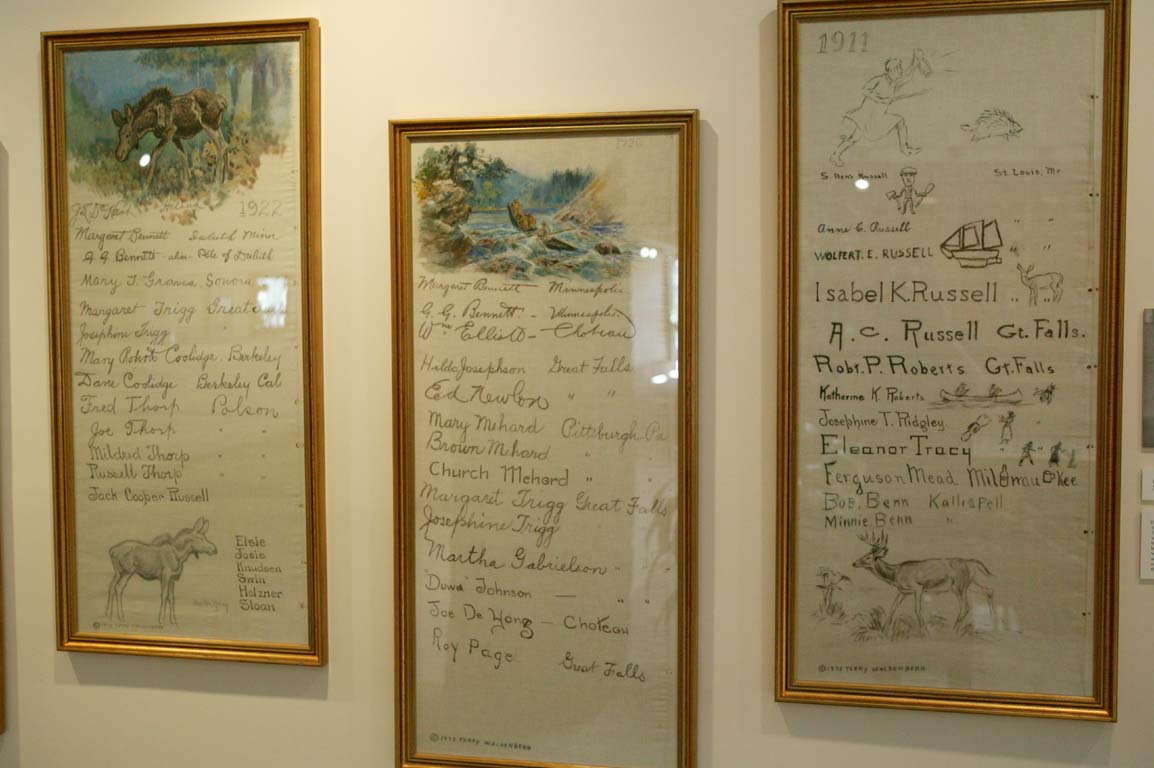 1922
Margaret Bennett Duluth Minn
G G Bennett alias Pete of Duluth
Mary J. Graves Sonora
Margaret Trigg Great
Josephine Trigg
Mary Robert Coolidge, Berkeley
Dane Coolidge Berkeley Cal
Fred Thorp Polson
Joe Thorp " "
Mildrid Thorp " "
Russell Thorp " "
Jack Cooper Russell
Elsie
Josie
Knudsen
Swin
Holzner
Sloan
Margaret Bennett Minneapolis
G. G. Bennett. - Minneapolis
Wm Elliott - Choteau
Hilda Josephson Great Falls
Ed Newlon " "
Mary Mehard Pittsburgh Pa
Brown Mehard " "
Church Mehard " "
Margaret Trigg Great Falls
Josephine Trigg " "
Martha Gabrielson " "
"Duwa" Johnson — " "
Joe De Yong - Choteau
Roy Page Great Falls
© 1972 TERRY WALDENBERG
1911
Russell St. Louis, Mo.
Anne C. Russell " "
WOLFERT. E. RUSSELL " "
Isabel K. Russell " "
A. C. Russell Gt. Falls.
Robt. P. Roberts Gt. Falls
Katherine K. Roberts
Josephine T. Ridgley
Eleanor Tracy "
Ferguson Mead Milwaukee
Bob. Benn Kallispell
Minnie Benn "
© 1972 TERRY WALDENBERG